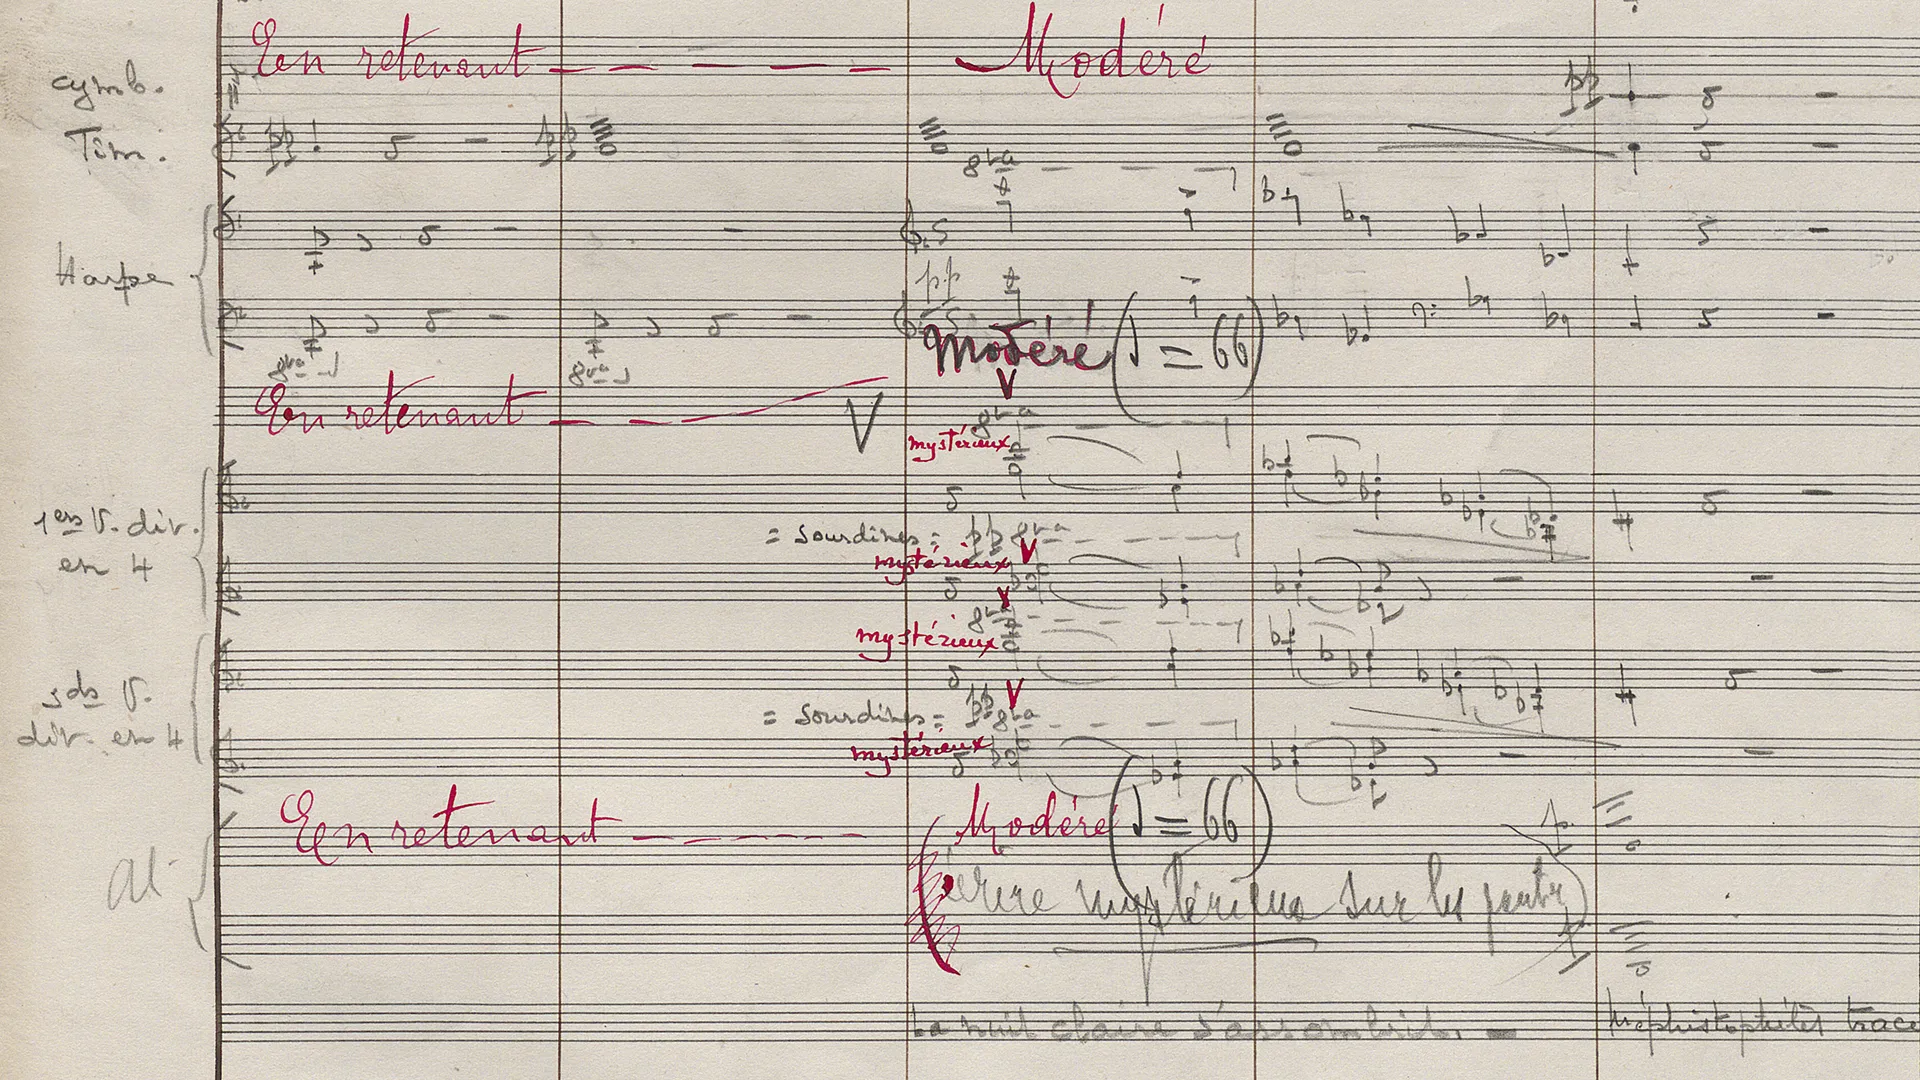 En retenant
Modéré
cymb.
pp
Tim.
pp
pp
8va
Harpe
pp
Modéré (♩ = 66)
8va
8va
En retenant
8va
mystérieux
1ers V. div.
en 4
= Sourdines = pp 8va
mystérieux
8va
mystérieux
2ds V.
div. en 4
pp
= Sourdines = 8va
mystérieux
En retenant
Modéré (♩ = 66)
écrire mystérieux sur les parties
La nuit claire s'assombrit. —
Méphistophélès trace